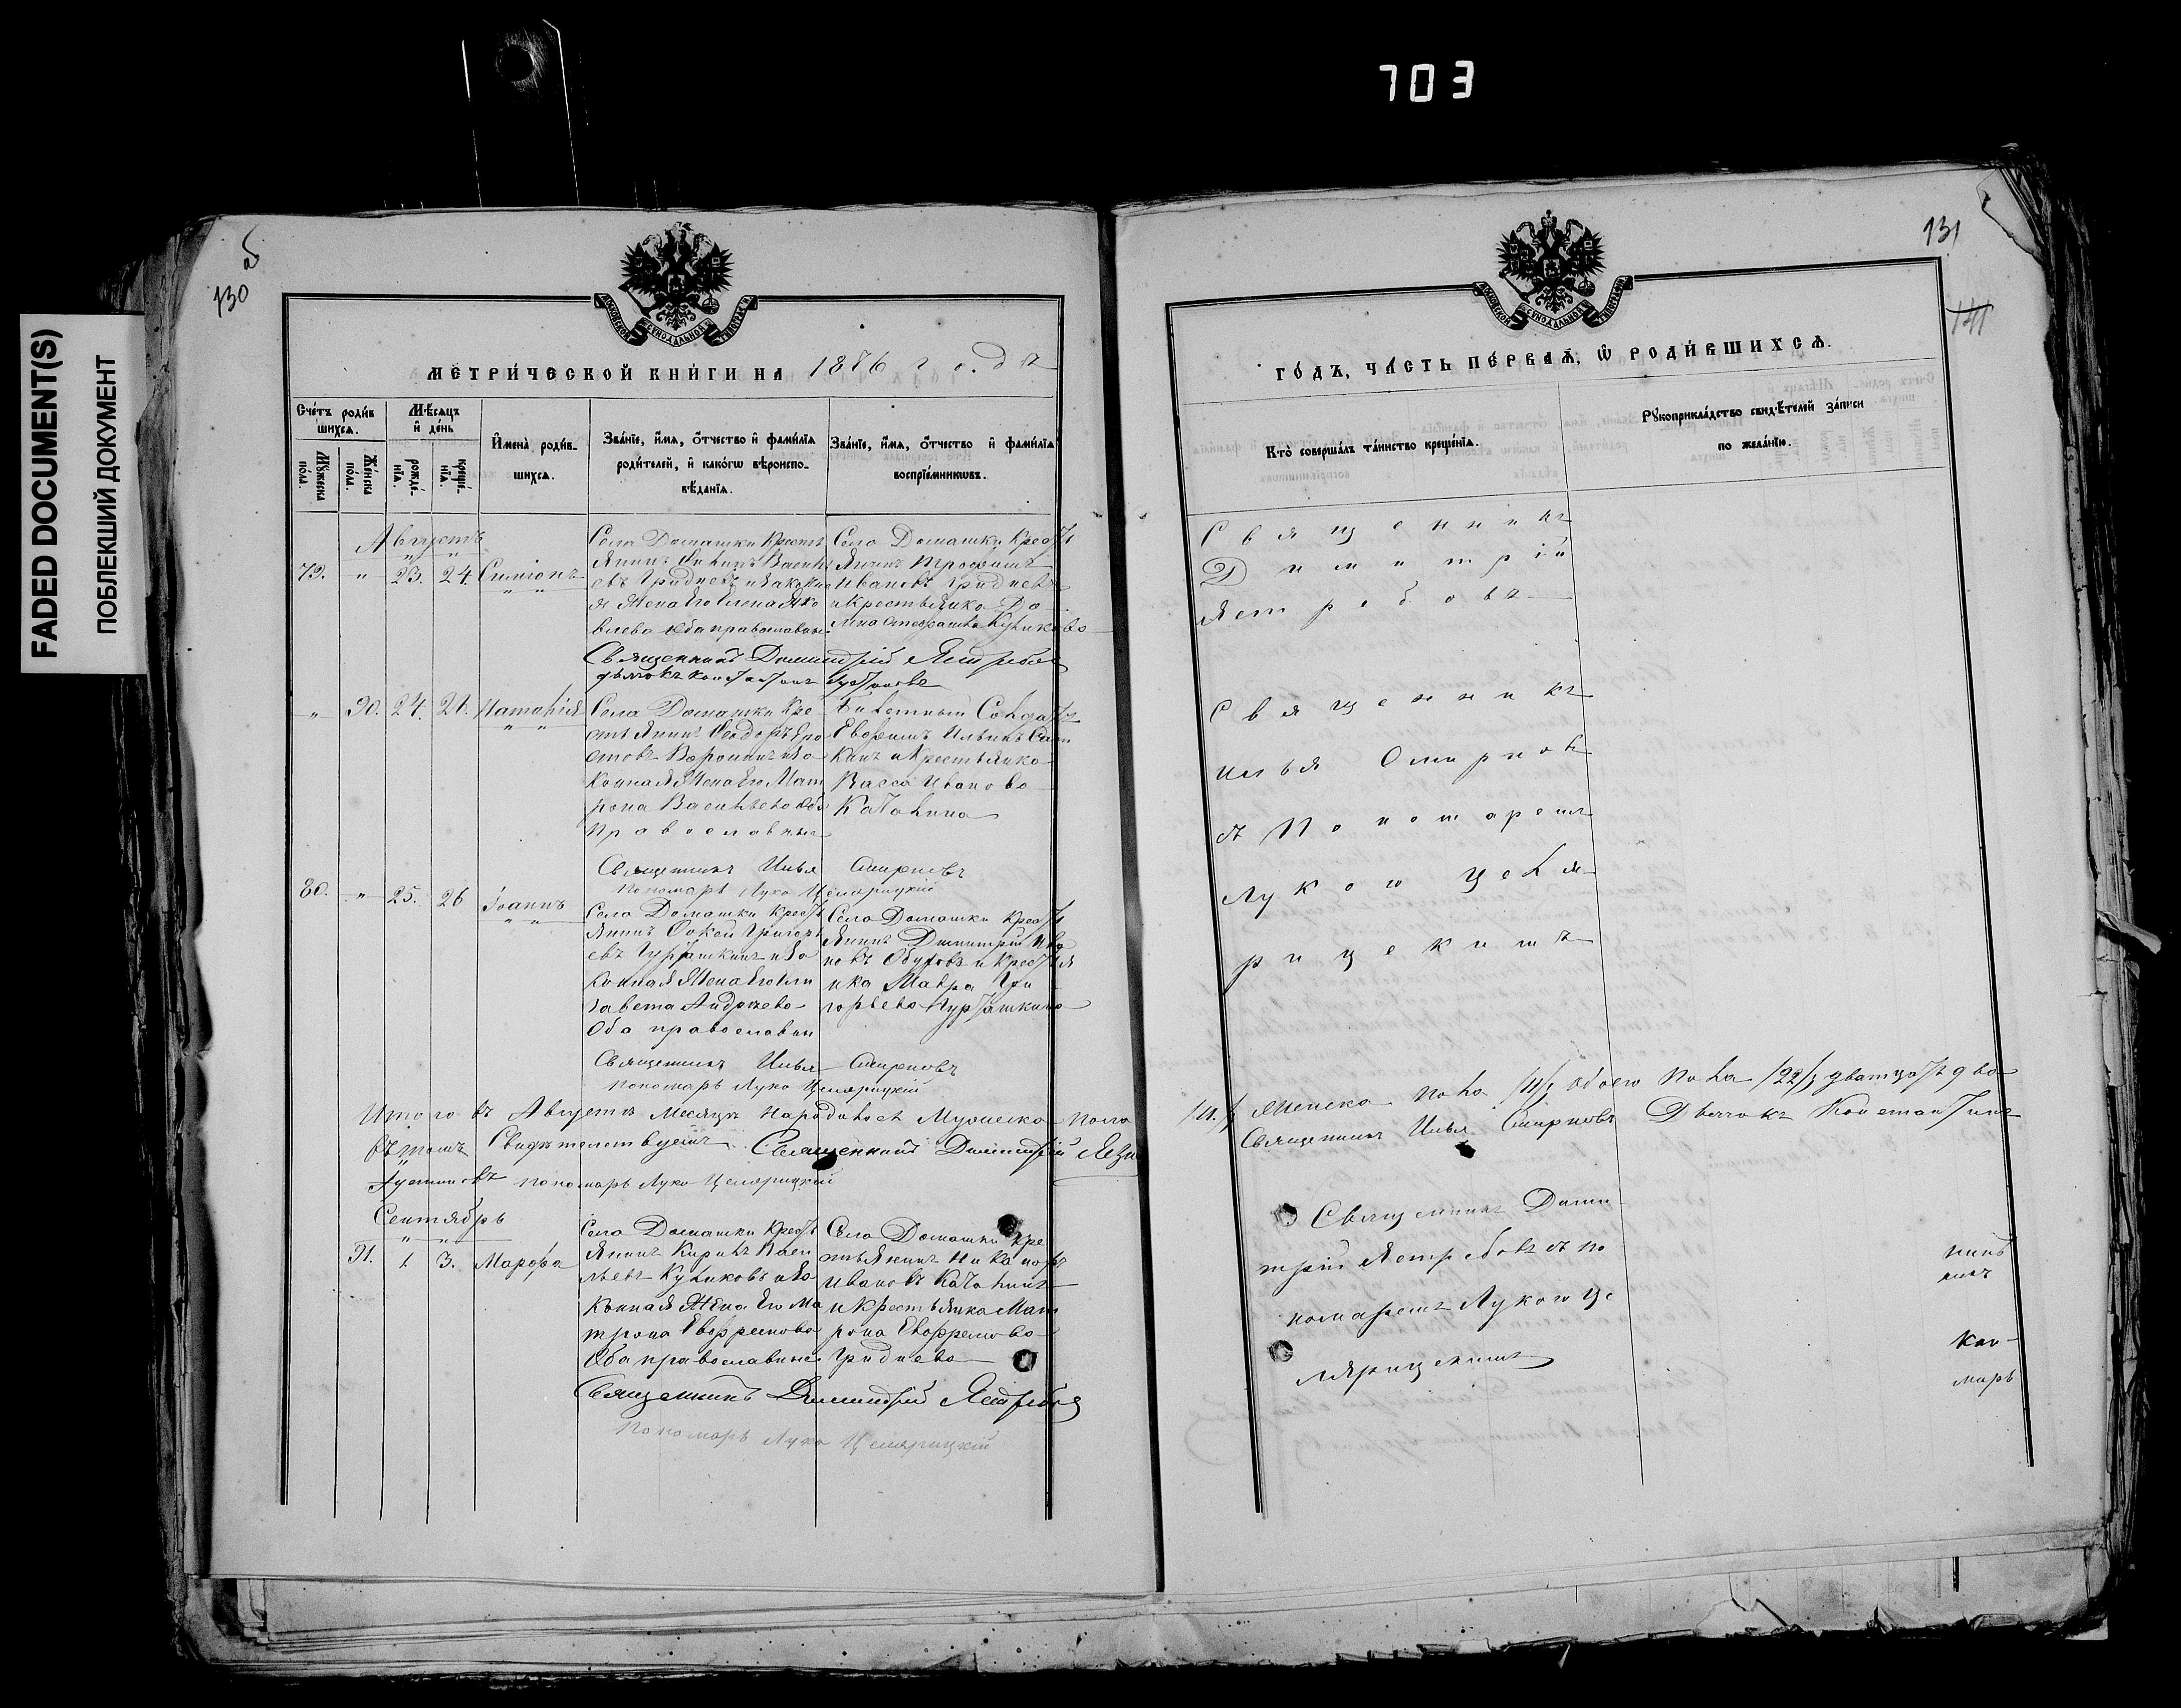 703
FADED DOCUMENT(S)
ПОБЛЕКШИЙ ДОКУМЕНТ
130
МЕТРИЧЕСКОЙ КНИГИ НА 1886 года
Счетъ родившихся.
Мѣсяцъ и день
Имена родившихся.
Званіе, имя, отчество и фамилія родителей, и какогω вѣроисповѣданія.
Званіе, имя, отчество и фамилія воспріемникωвъ.
Мꙋжеска пола.
Женска пола.
рожденія.
крещенія.
Августъ
79. " 23. 24. Симіонъ
Села Домашки Крестъ
янинъ
евъ Гридневъ и законна
я Жена Его Елена Яко
влева оба православные
Село Домашки Крест
янинъ Трофимъ
Ивановъ Гридневъ
и крестьянка До
мна Стефанова Куликова
Священникъ Димитрій Ястребовъ
дьячокъ Константинъ
" 90. 24. Наталія
Села Домашки Кре
стьянинъ Феодоръ
Воронинъ и за
конная Жена Его Мат
рона Васильева оба
православные
Билетный Солдатъ
Евфимъ Ильинъ
и Крестьянка
Васса Иванова
Качалина
Священникъ Илья Смирновъ
Пономарь Лука Цемярицкій
80. " 25. 26 Іоаннъ
Село Домашки Крест
янинъ Фокей Григорь
евъ Чурташкинъ и за
конная Жена Его Ели
завета Андреева
Оба православны
Село Домашки Крест
янинъ Димитрій Ива
новъ Обуховъ и крестья
нка Мавра Гри
горьева Чурташкина
Священникъ Илья Смирновъ
Пономарь Лука Цемярицкій
Итого въ Августѣ Месяцѣ народилось Мужеска пола
въ томъ Свидѣтельствуемъ Священникъ Димитрій
Пономарь Лука Цемярицкій
Сентябрь
91. 1. 3. Марѳа
Село Домашки Крест
янинъ Кирилъ Васи
льевъ Куликовъ и за
конная Жена Его Ма
трона Евфремова
Оба православные
Село Домашки Кре
стьянинъ Никаноръ
Ивановъ Качалинъ
и крестьянка Мат
рона Евфремова
Гриднева
Священникъ Димитрій Ястребовъ
Пономарь Лука Цемярицкій
131
141
ГОДЪ, ЧАСТЬ ПЕРВАЯ, Ѿ РОДИВШИХСЯ.
Кто совершалъ таинство крещенія.
Рꙋкоприкладство свидѣтелей записи по желанію.
Священникъ
Димитрій
Ястребовъ
Священникъ
Илья Смирновъ
съ Пономаремъ
Лукою Цемя
рицкимъ
/11./ Женска пола /11/ обоего пола /22/ дватцать два
Священникъ Илья Смирновъ Дьячокъ Константинъ
Священникъ Дими
трій Ястребовъ съ по
номаремъ Лукою Це
мярицкимъ